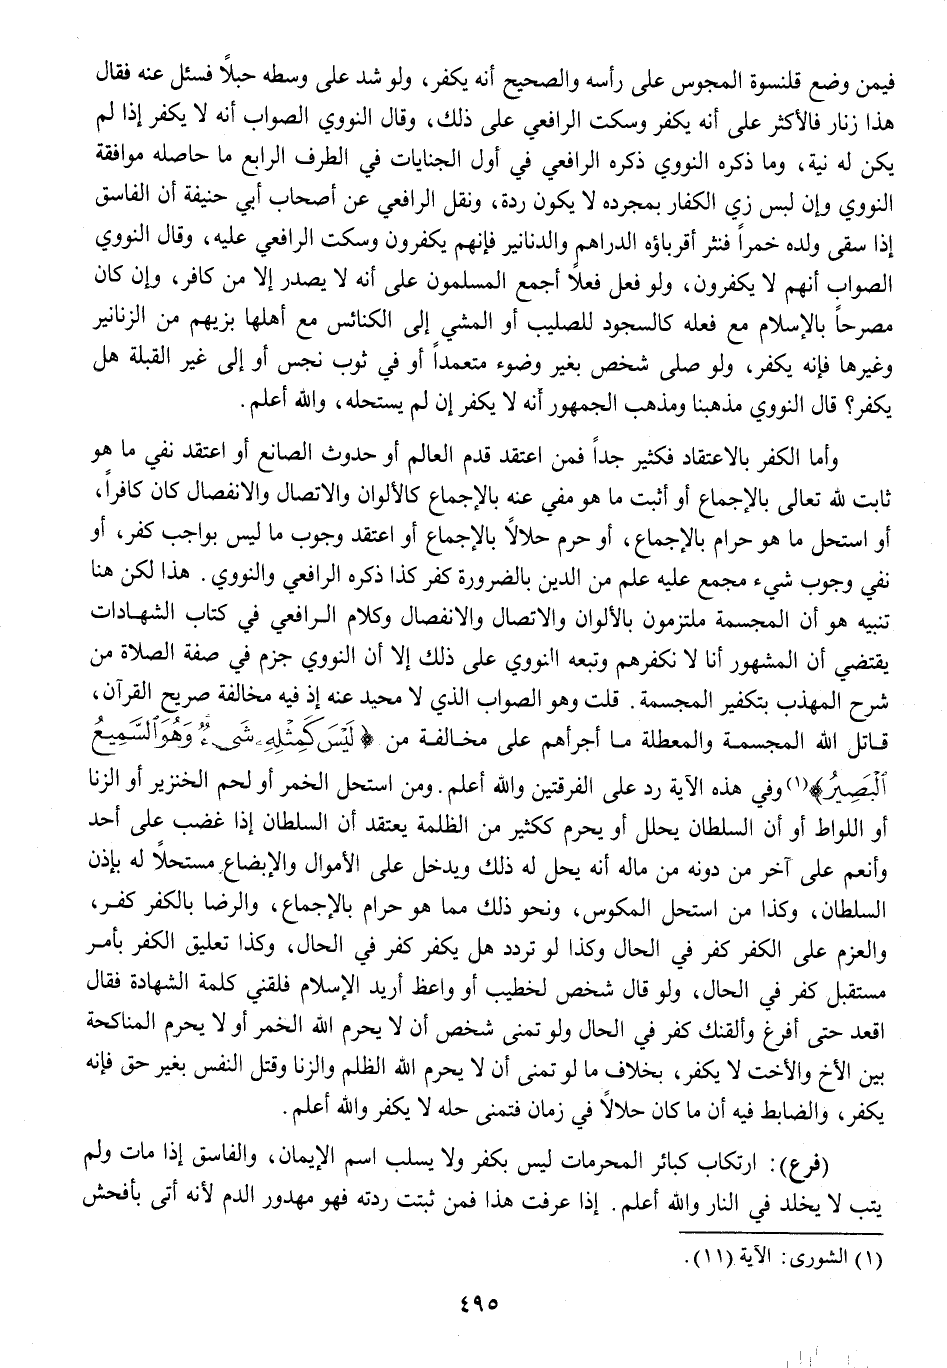 فيمن وضع قلنسوة المجوس على رأسه والصحيح أنه يكفر، ولو شد على وسطه حبلاً فسئل عنه فقال
هذا زنار فالأكثر على أنه يكفر وسكت الرافعي على ذلك، وقال النووي الصواب أنه لا يكفر إذا لم
يكن له نية، وما ذكره النووي ذكره الرافعي في أول الجنايات في الطرف الرابع ما حاصله موافقة
النووي وإن لبس زي الكفار بمجرده لا يكون ردة، ونقل الرافعي عن أصحاب أبي حنيفة أن الفاسق
إذا سقى ولده خمراً فنثر أقرباؤه الدراهم والدنانير فإنهم يكفرون وسكت الرافعي عليه، وقال النووي
الصواب أنهم لا يكفرون، ولو فعل فعلاً أجمع المسلمون على أنه لا يصدر إلا من كافر، وإن كان
مصرحاً بالإسلام مع فعله كالسجود للصليب أو المشي إلى الكنائس مع أهلها بزيهم من الزنانير
وغيرها فإنه يكفر، ولو صلى شخص بغير وضوء متعمداً أو في ثوب نجس أو إلى غير القبلة هل
يكفر؟ قال النووي مذهبنا ومذهب الجمهور أنه لا يكفر إن لم يستحله، والله أعلم.
وأما الكفر بالاعتقاد فكثير جداً فمن اعتقد قدم العالم أو حدوث الصانع أو اعتقد نفي ما هو
ثابت لله تعالى بالإجماع أو أثبت ما هو مفي عنه بالإجماع كالألوان والاتصال والانفصال كان كافراً،
أو استحل ما هو حرام بالإجماع، أو حرم حلالاً بالإجماع أو اعتقد وجوب ما ليس بواجب كفر، أو
نفي وجوب شيء مجمع عليه علم من الدين بالضرورة كفر كذا ذكره الرافعي والنووي. هذا لكن هنا
تنبيه هو أن المجسمة ملتزمون بالألوان والاتصال والانفصال وكلام الرافعي في كتاب الشهادات
يقتضي أن المشهور أنا لا نكفرهم وتبعه النووي على ذلك إلا أن النووي جزم في صفة الصلاة من
شرح المهذب بتكفير المجسمة. قلت وهو الصواب الذي لا محيد عنه إذ فيه مخالفة صريح القرآن،
قاتل الله المجسمة والمعطلة ما أجرأهم على مخالفة من ﴿لَيْسَ كَمِثْلِهِ شَيْءٌ وَهُوَ ٱلسَّمِيعُ
ٱلْبَصِيرُ﴾(١) وفي هذه الآية رد على الفرقتين والله أعلم. ومن استحل الخمر أو لحم الخنزير أو الزنا
أو اللواط أو أن السلطان يحلل أو يحرم ككثير من الظلمة يعتقد أن السلطان إذا غضب على أحد
وأنعم على آخر من دونه من ماله أنه يحل له ذلك ويدخل على الأموال والإبضاع مستحلاً له بإذن
السلطان، وكذا من استحل المكوس، ونحو ذلك مما هو حرام بالإجماع، والرضا بالكفر كفر،
والعزم على الكفر كفر في الحال وكذا لو تردد هل يكفر كفر في الحال، وكذا تعليق الكفر بأمر
مستقبل كفر في الحال، ولو قال شخص لخطيب أو واعظ أريد الإسلام فلقني كلمة الشهادة فقال
اقعد حتى أفرغ وألقنك كفر في الحال ولو تمنى شخص أن لا يحرم الله الخمر أو لا يحرم المناكحة
بين الأخ والأخت لا يكفر، بخلاف ما لو تمنى أن لا يحرم الله الظلم والزنا وقتل النفس بغير حق فإنه
يكفر، والضابط فيه أن ما كان حلالاً في زمان فتمنى حله لا يكفر والله أعلم.
(فرع): ارتكاب كبائر المحرمات ليس بكفر ولا يسلب اسم الإيمان، والفاسق إذا مات ولم
يتب لا يخلد في النار والله أعلم. إذا عرفت هذا فمن ثبتت ردته فهو مهدور الدم لأنه أتى بأفحش
(١) الشورى: الآية (١١).
٤٩٥